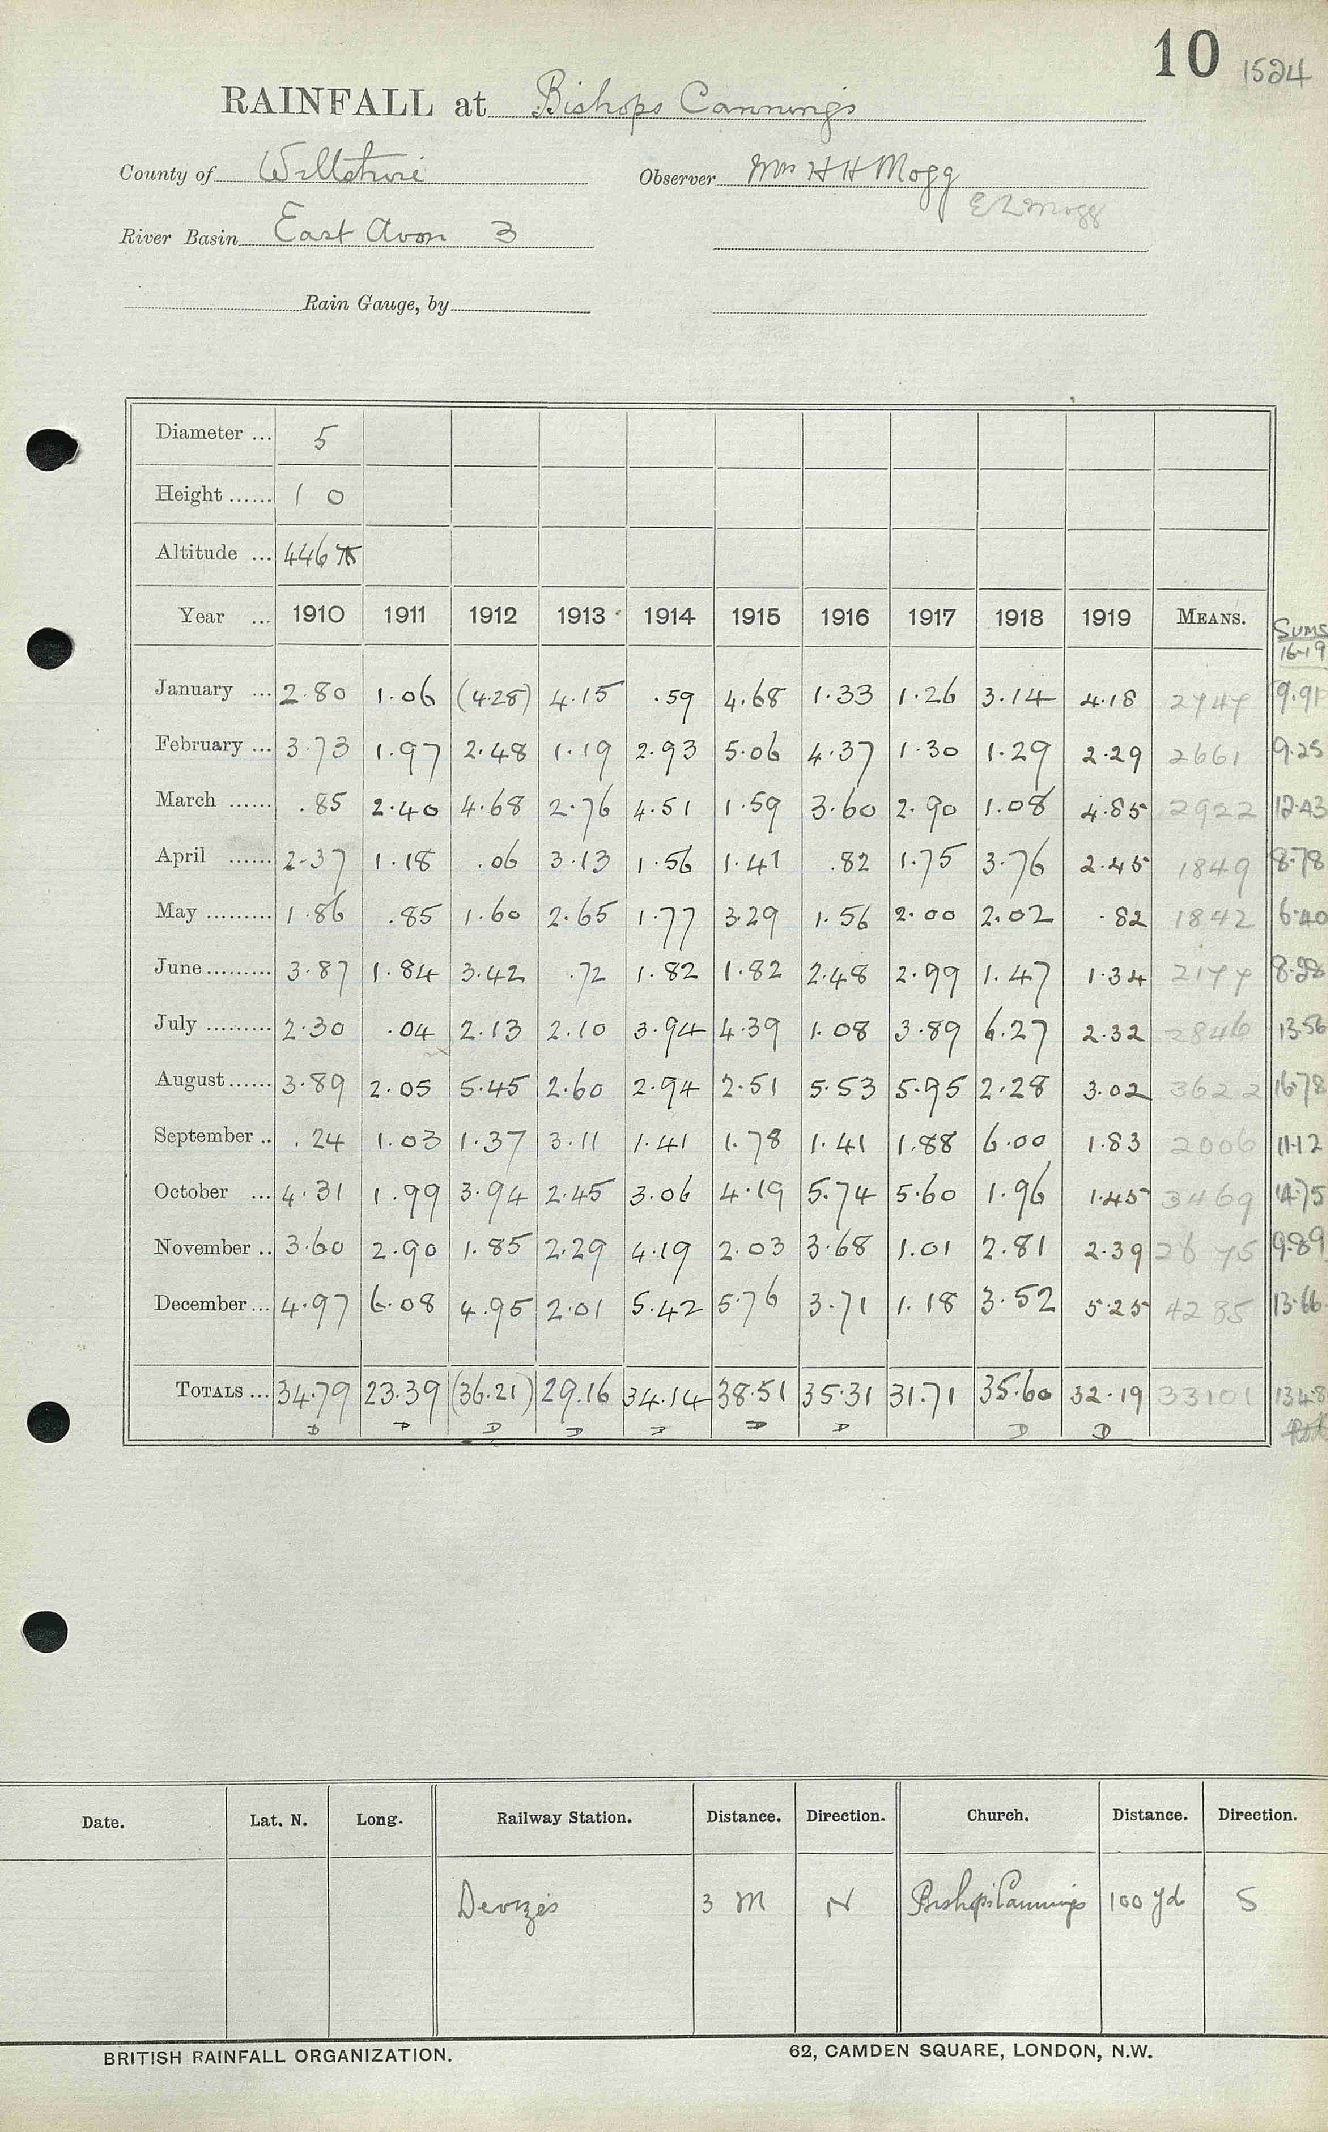 10 1524
RAINFALL at Bishops Cannings
County of Wiltshire Observer Mrs H H Mogg
E L Mogg
River Basin East Avon 3
Rain Gauge, by
Diameter ... 5
Height ...... 1 0
Altitude ... 446
Year ... 1910 1911 1912 1913 1914 1915 1916 1917 1918 1919 MEANS. SUMS 16-19
January ... 2.80 1.06 (4.28) 4.15 .59 4.68 1.33 1.26 3.14 4.18 2747 9.91
February ... 3.73 1.97 2.48 1.19 2.93 5.06 4.37 1.30 1.29 2.29 2661 9.25
March ...... .85 2.40 4.68 2.76 4.51 1.59 3.60 2.90 1.08 4.85 2922 12.43
April ...... 2.37 1.18 .06 3.13 1.56 1.41 .82 1.75 3.76 2.45 1849 8.78
May ......... 1.86 .85 1.60 2.65 1.77 3.29 1.56 2.00 2.02 .82 1842 6.40
June ......... 3.87 1.84 3.42 .72 1.82 1.82 2.48 2.99 1.47 1.34 2177 8.28
July ......... 2.30 .04 2.13 2.10 3.94 4.39 1.08 3.89 6.27 2.32 2846 13.56
August ...... 3.89 2.05 5.45 2.60 2.94 2.51 5.53 5.95 2.28 3.02 3622 16.78
September .. .24 1.03 1.37 3.11 1.41 1.78 1.41 1.88 6.00 1.83 2006 11.12
October ... 4.31 1.99 3.94 2.45 3.06 4.19 5.74 5.60 1.96 1.45 3469 14.75
November .. 3.60 2.90 1.85 2.29 4.19 2.03 3.68 1.01 2.81 2.39 2675 9.89
December ... 4.97 6.08 4.95 2.01 5.42 5.76 3.71 1.18 3.52 5.25 4285 13.66
TOTALS ... 34.79 23.39 (36.21) 29.16 34.14 38.51 35.31 31.71 35.60 32.19 33101 134.8
D D D D D D D D D
Date. Lat. N. Long. Railway Station. Distance. Direction. Church. Distance. Direction.
Devizes 3 M N Bishops Cannings 100 yd S
BRITISH RAINFALL ORGANIZATION. 62, CAMDEN SQUARE, LONDON, N.W.